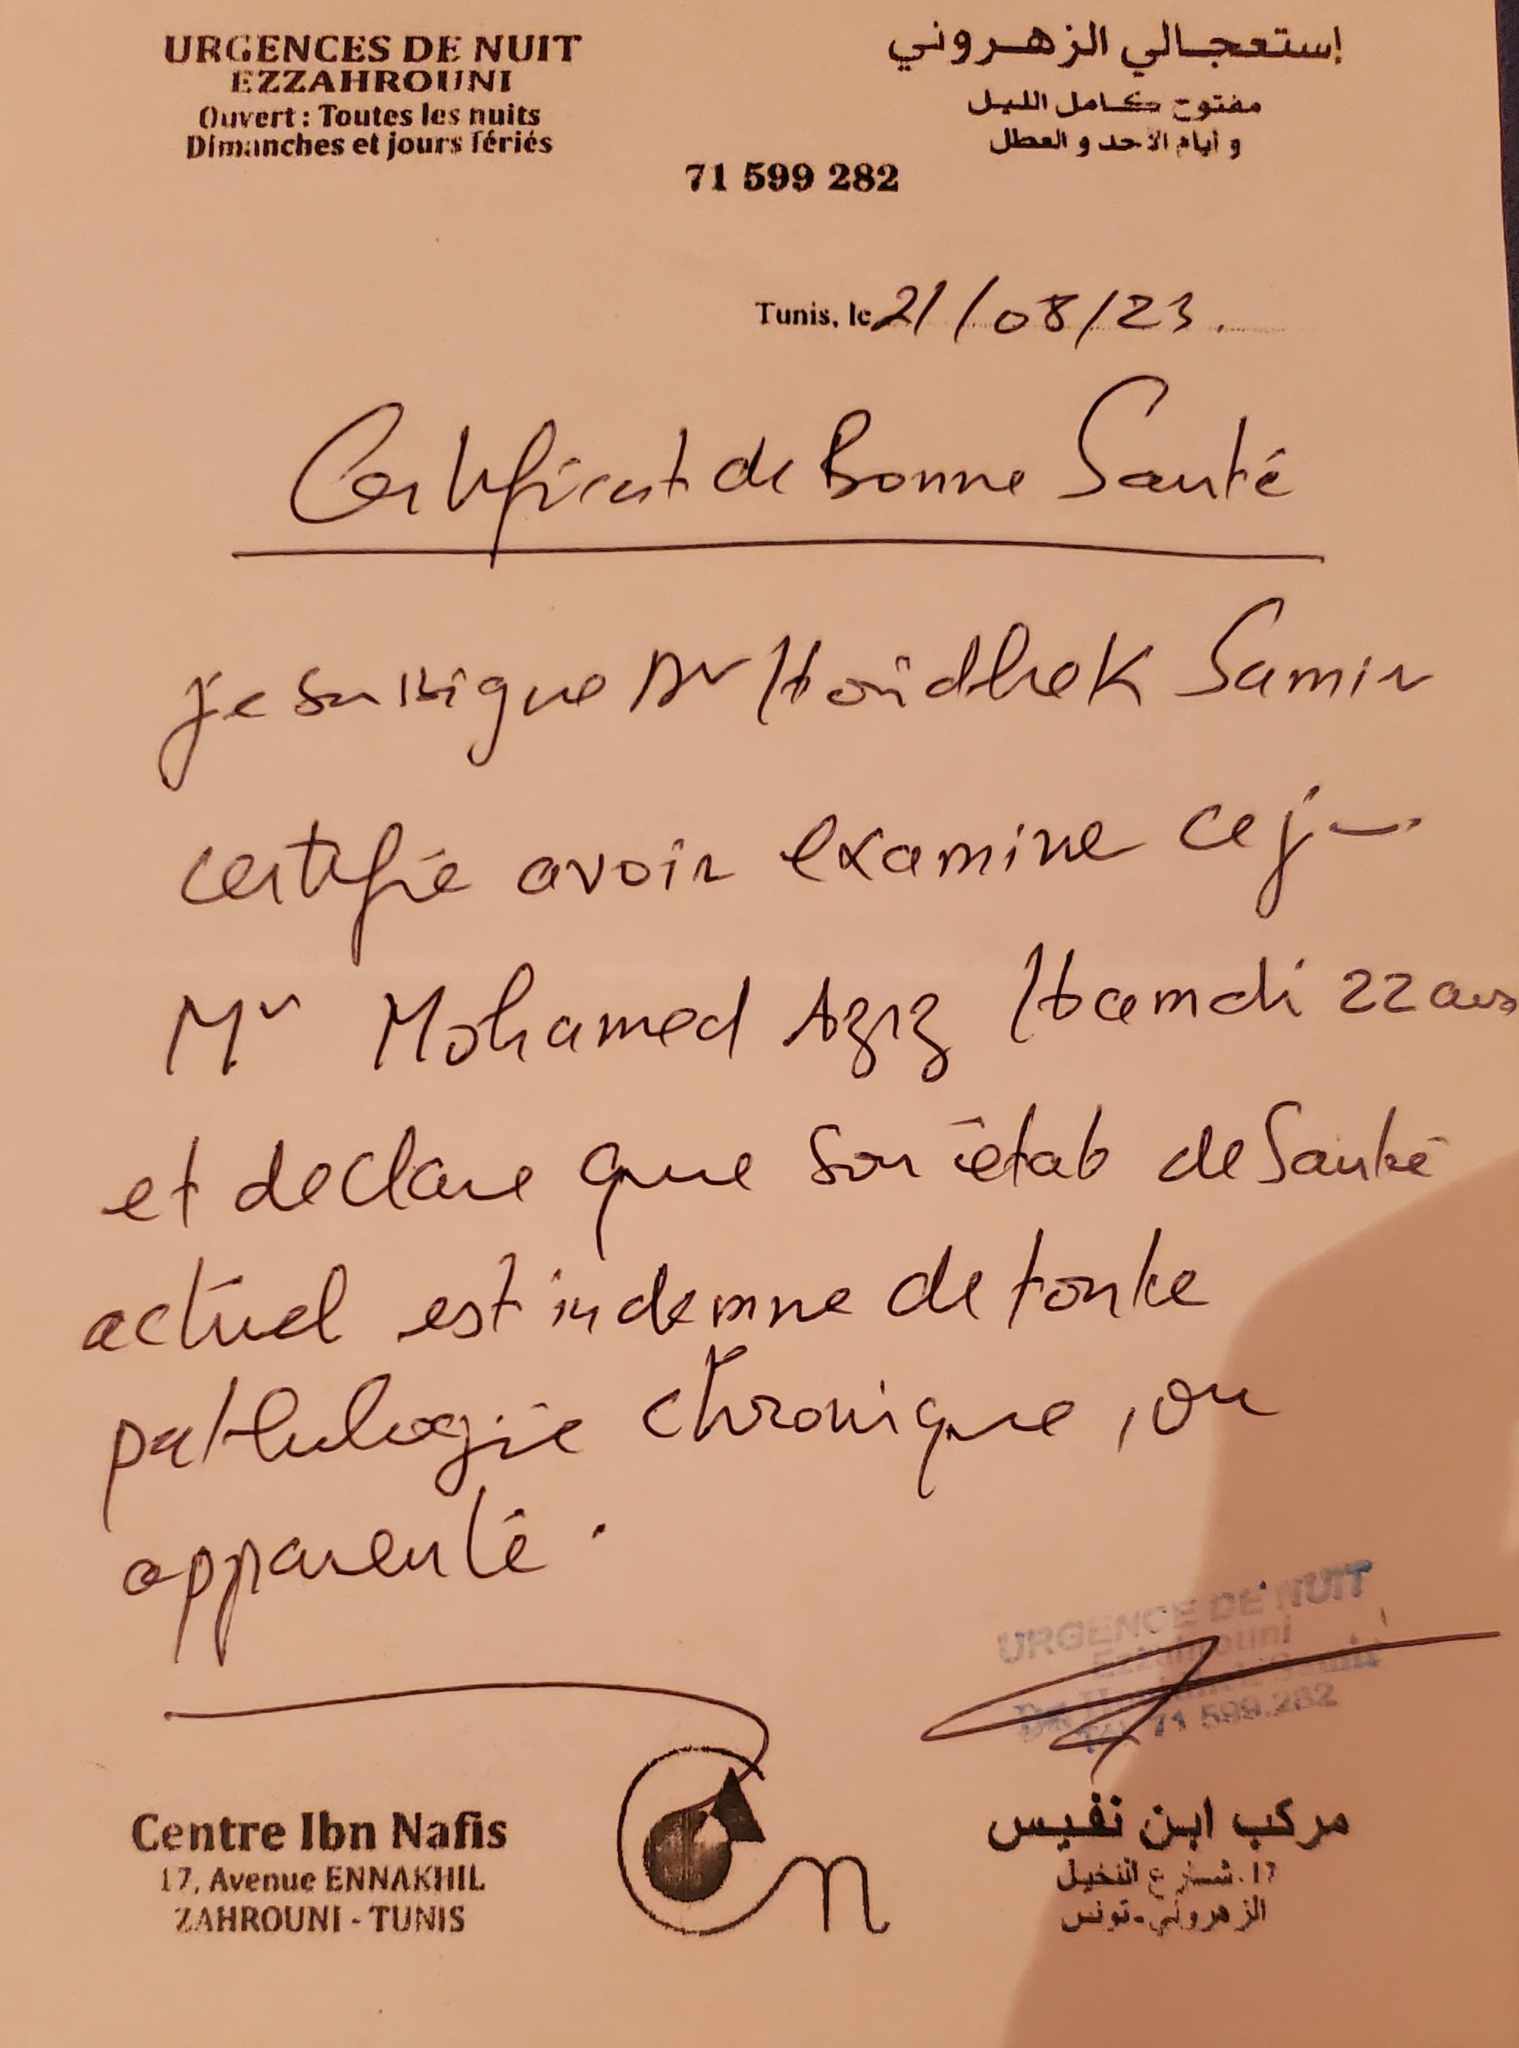 URGENCES DE NUIT
EZZAHROUNI
Ouvert : Toutes les nuits
Dimanches et jours fériés
إستعجالي الزهروني
مفتوح كامل الليل
و أيام الأحد و العطل
71 599 282
Tunis, le 21/08/23.
Certificat de Bonne Santé
je sussigne Dr Haidhek Samir
certifie avoir examine ce j
Mr Mohamed Aziz Hamdi 22 ans
et declare que son état de Santé
actuel est indemne de toute
pathologie chronique, ou
apparenté.
URGENCE DE NUIT
Ezzahrouni
Tél. 71 599.282
Centre Ibn Nafis
17, Avenue ENNAKHIL
ZAHROUNI - TUNIS
مركب ابن نفيس
17، شارع النخيل
الزهروني - تونس